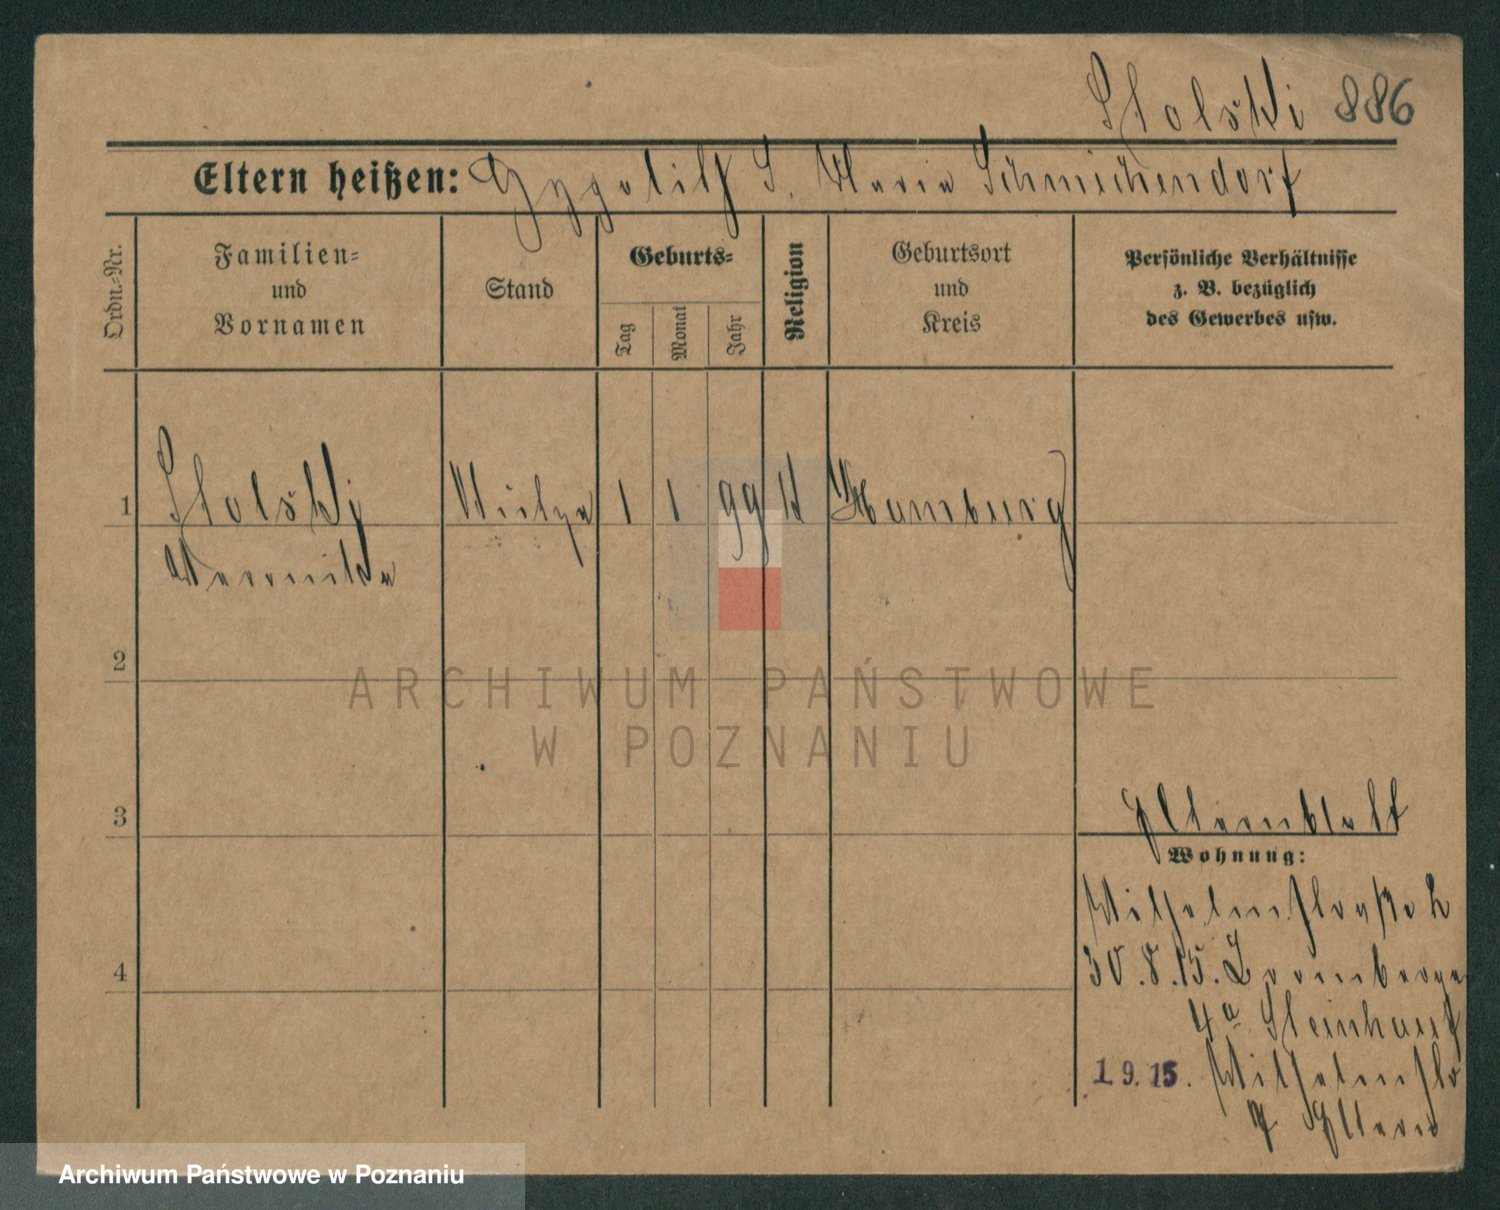 Stolski 886
Eltern heißen: Hypolith S. Maria Schmichendorf
Ordn.-Nr.
Familien-
und
Vornamen
Stand
Geburts-
Tag
Monat
Jahr
Religion
Geburtsort
und
Kreis
Persönliche Verhältnisse
z. B. bezüglich
des Gewerbes usw.
1 Stolski 1 1 99 K Hamburg
Weronika
2
3
4
ARCHIWUM PAŃSTWOWE
W POZNANIU
Elternblatt
Wohnung:
Wilhelmstraße 2
30.8.15. Bromberger
4a Steinhauf
1 9. 15. Wilhelmstr
Eltern
Archiwum Państwowe w Poznaniu